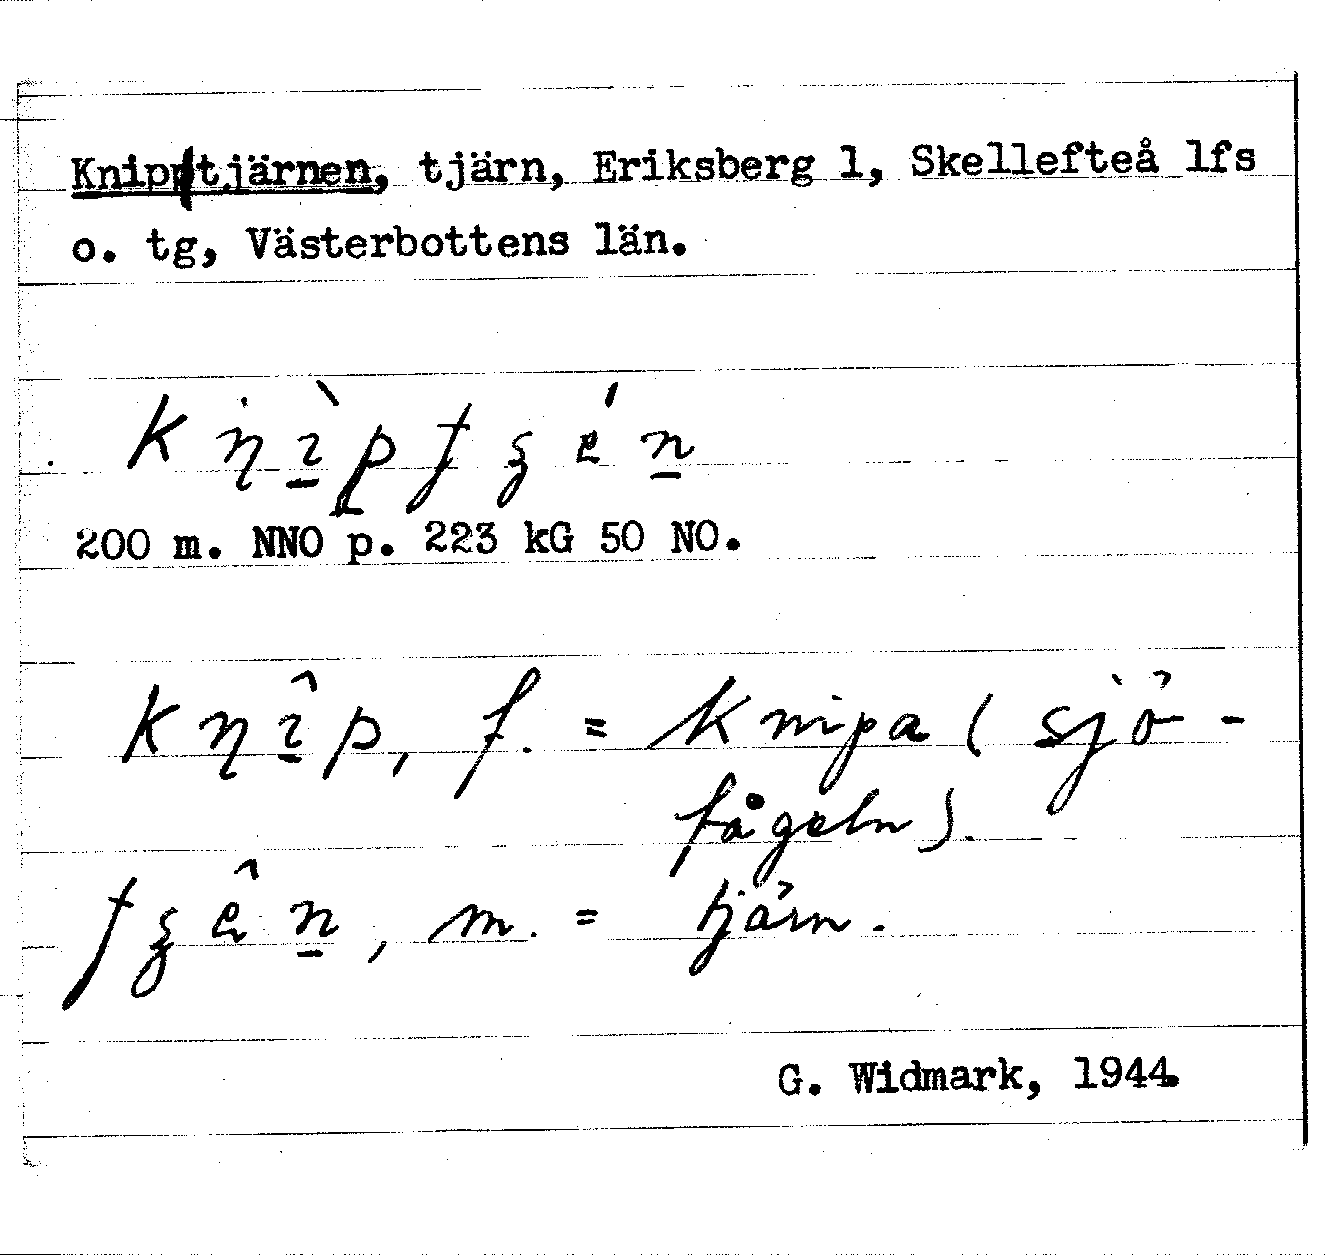 Kniptjärnen, tjärn, Eriksberg 1, Skellefteå lfs
o. tg, Västerbottens län.
200 m. NNO p. 223 kG 50 NO.
f. = Knipa (sjö-
fågeln).
m. = tjärn.
G. Widmark, 1944.